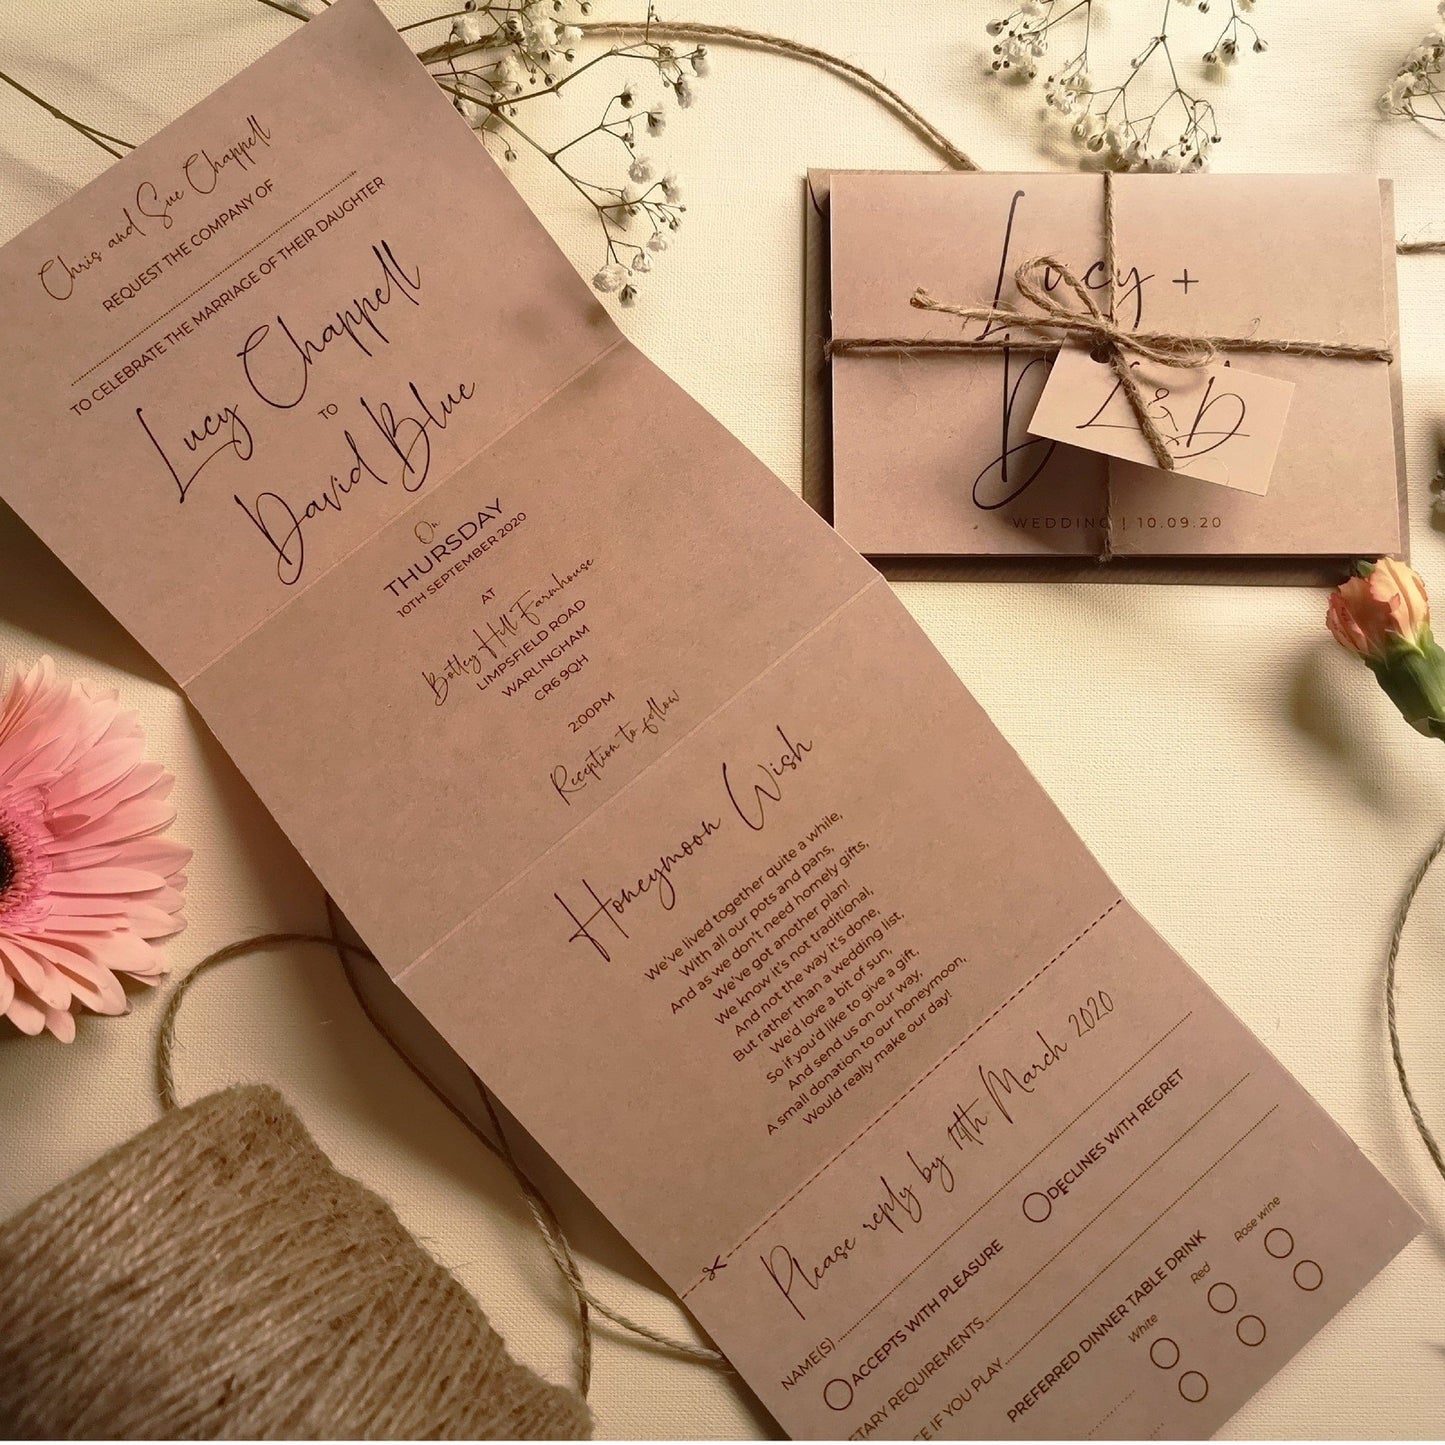 Chris and Sue Chappell
REQUEST THE COMPANY OF
TO CELEBRATE THE MARRIAGE OF THEIR DAUGHTER
Lucy Chappell
TO
David Blue
On
THURSDAY
10TH SEPTEMBER 2020
AT
Botley Hill Farmhouse
LIMPSFIELD ROAD
WARLINGHAM
CR6 9QH
2:00PM
Reception to follow
Honeymoon Wish
We've lived together quite a while,
With all our pots and pans,
And as we don't need homely gifts,
We've got another plan!
We know it's not traditional,
And not the way it's done,
But rather than a wedding list,
We'd love a bit of sun,
So if you'd like to give a gift,
And send us on our way,
A small donation to our honeymoon,
Would really make our day!
Please reply by 14th March 2020
NAME(S)
ACCEPTS WITH PLEASURE DECLINES WITH REGRET
ETARY REQUIREMENTS
SE IF YOU PLAY
PREFERRED DINNER TABLE DRINK
White Red Rose wine
Lucy +
D
L&D
WEDDING | 10.09.20